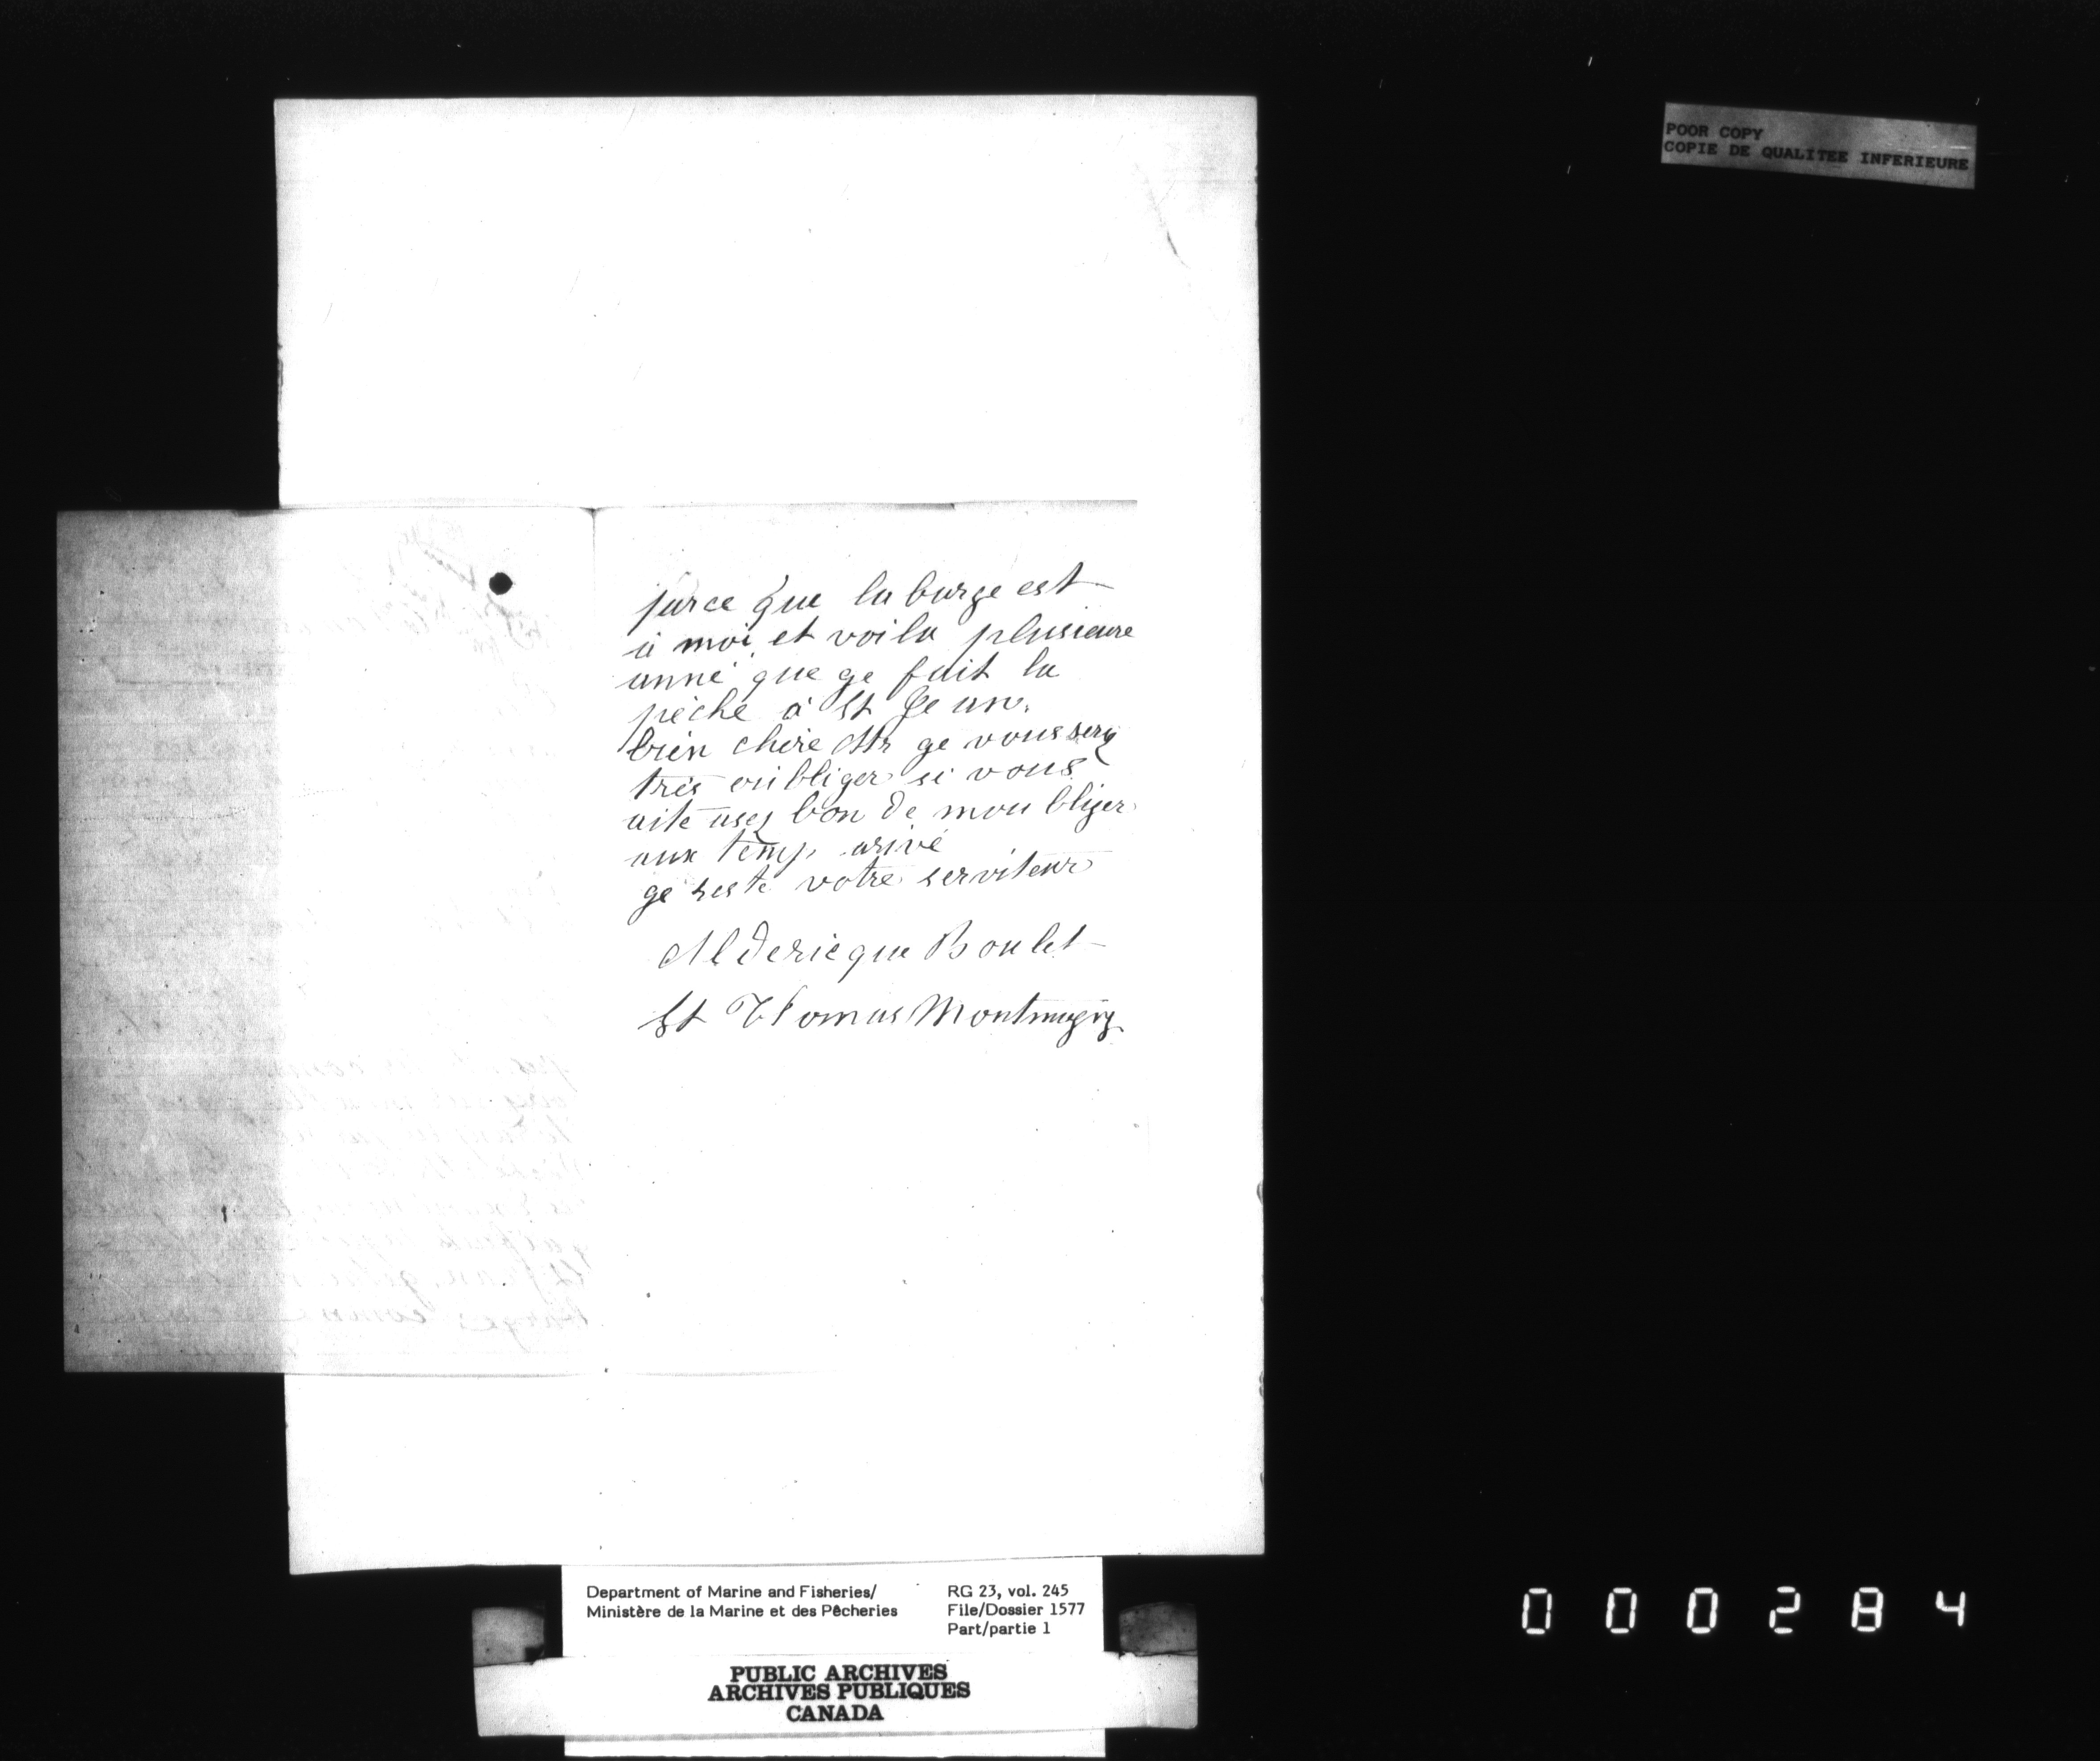 POOR COPY
COPIE DE QUALITEE INFERIEURE
parce que la barge est
à moi et voila plusieure
anné que ge fait la
pèche à St Jean.
bien chere Mr ge vous sery
très oubliger si vous
aite asez bon de mou bliger
aux temp arivé
ge reste votre serviteur
Aldericque Boulet
St Thomas Montmagny
Department of Marine and Fisheries/
Ministère de la Marine et des Pêcheries
RG 23, vol. 245
File/Dossier 1577
Part/partie 1
PUBLIC ARCHIVES
ARCHIVES PUBLIQUES
CANADA
000284